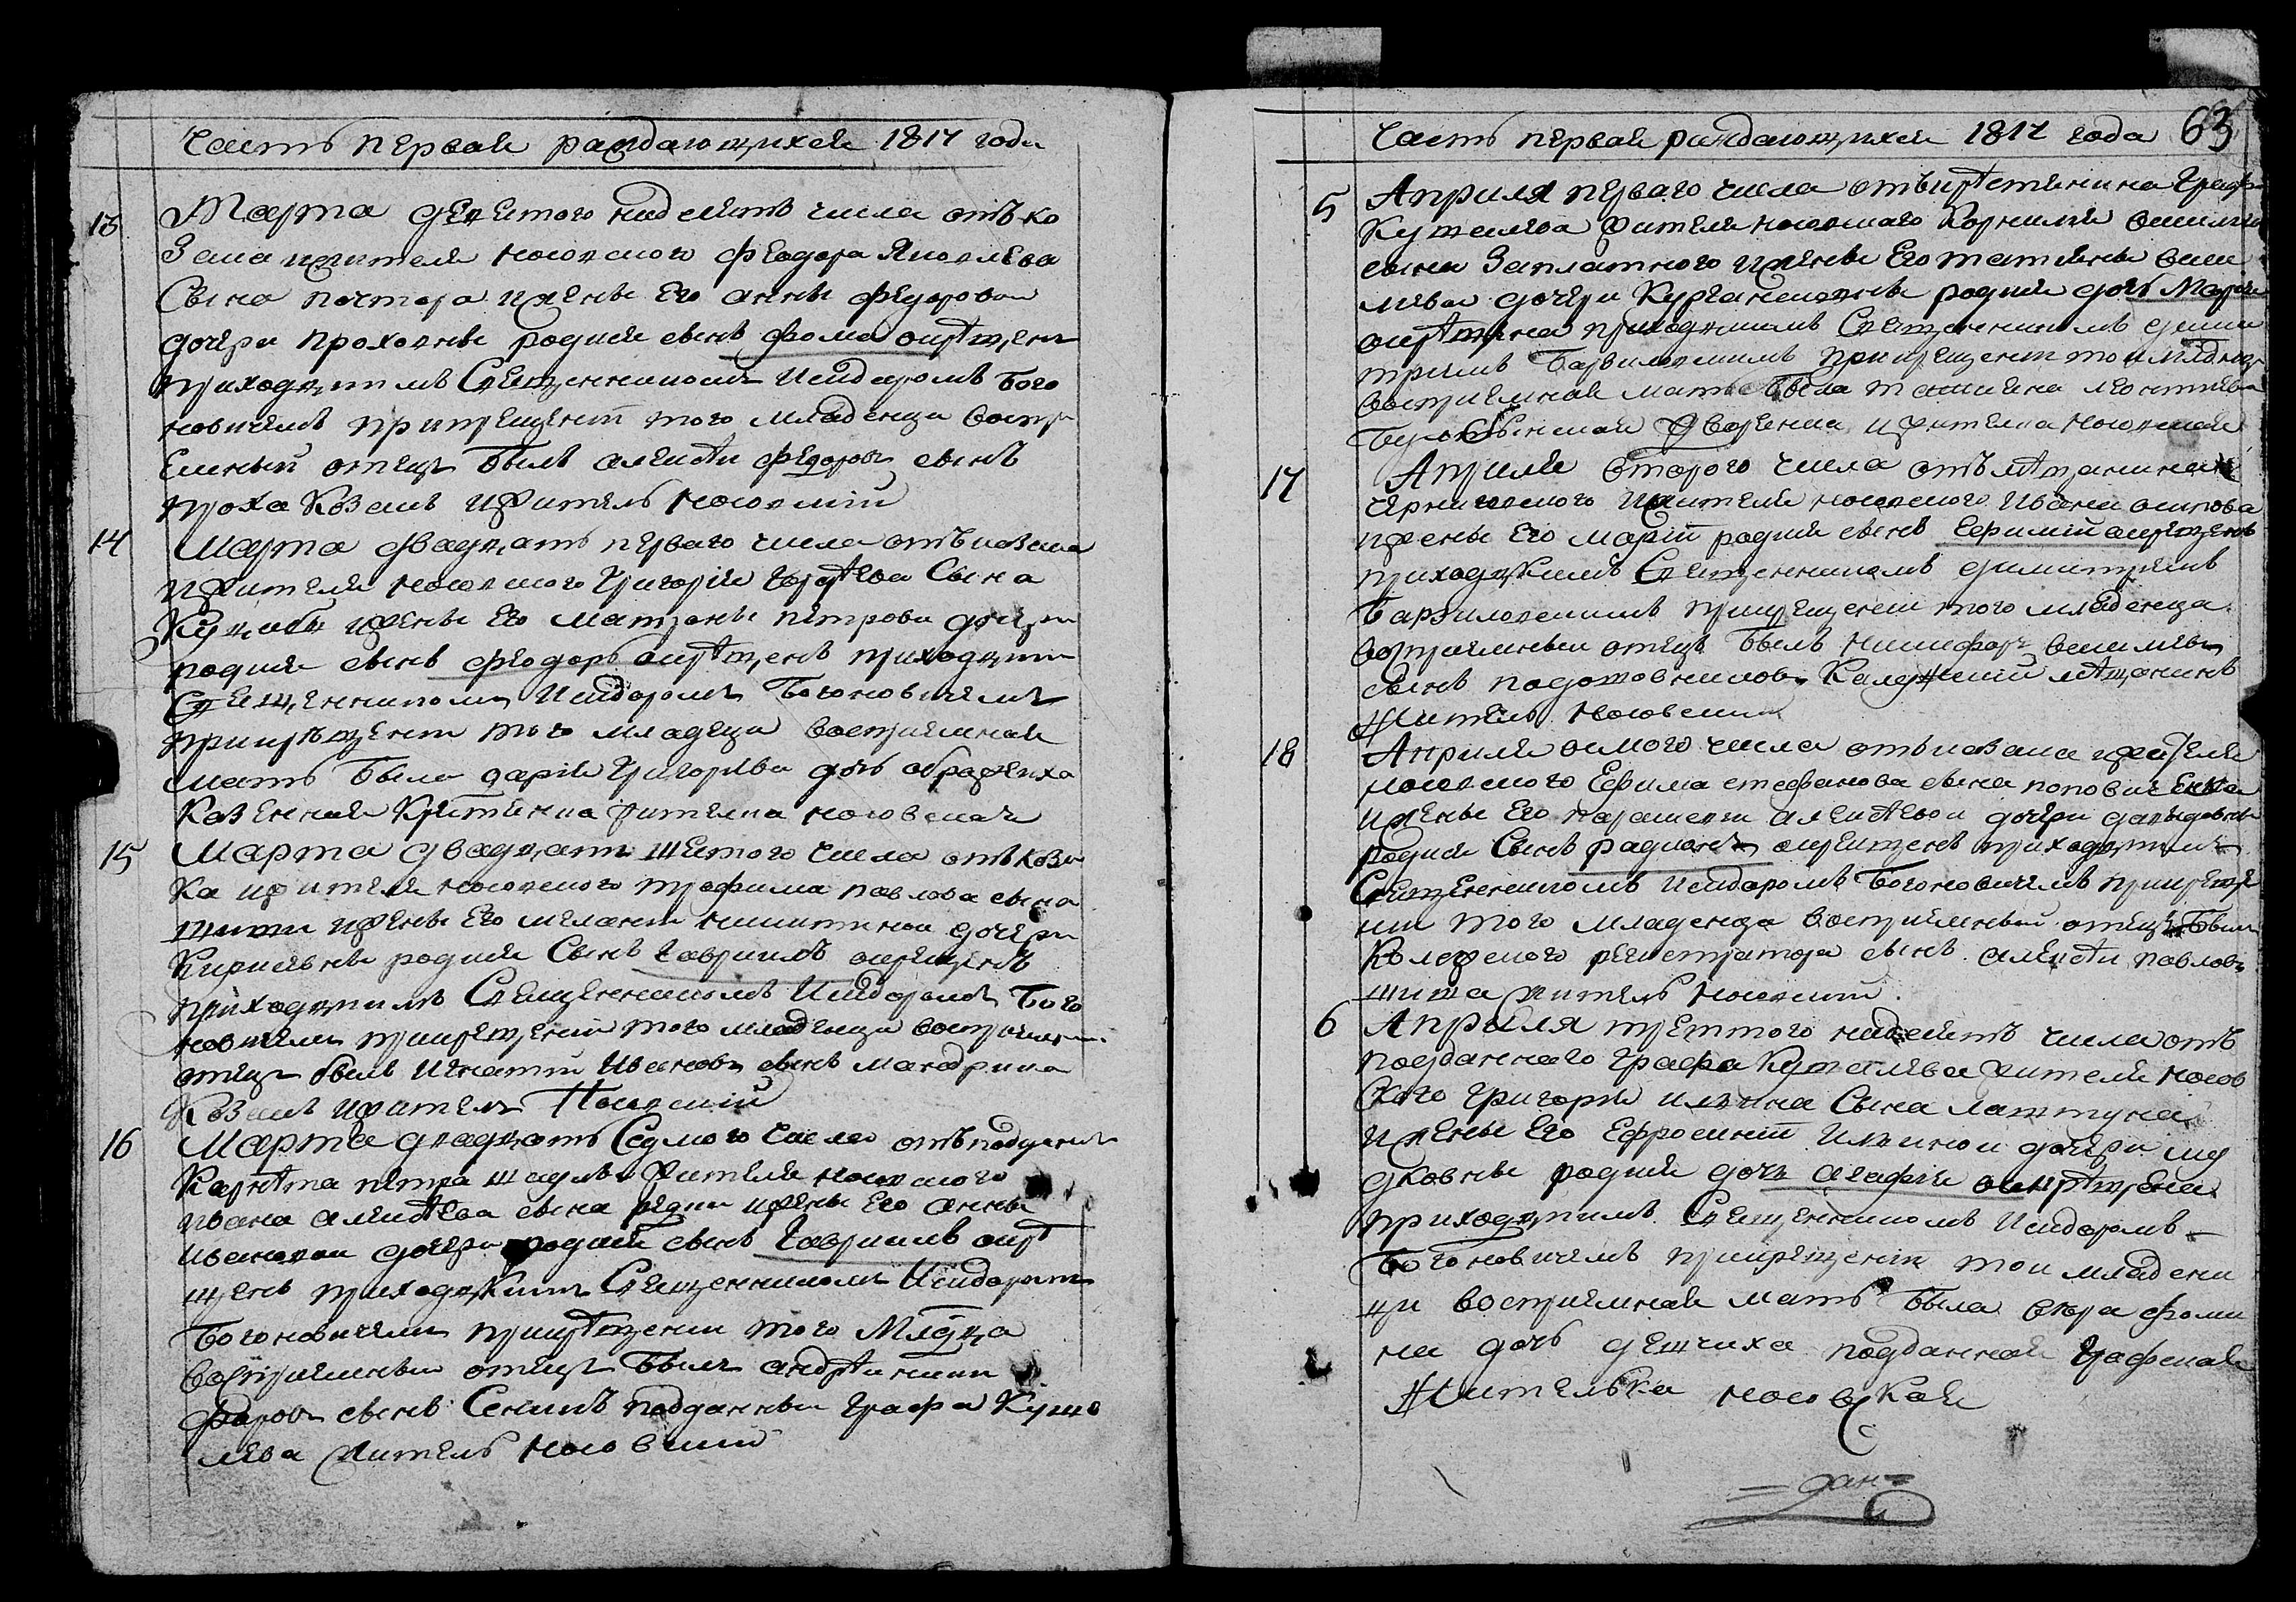 Часть первая раждающихся 1817 года
13
Марта девятого надесять числа отъ ко
зака ижителя носовского Феодора Яковлева
Сына почтора ижены Его анны федоровои
дочери проховны родися сынъ фома окрѣщенъ
приходцкимъ Священникомъ Исидоромъ Бого
новичемъ прикрещенїи того младенца воспри
емный отецъ былъ алексѣи федоровъ сынъ
проха Козакъ ижитель носовскїй
14
Марта двадцать перваго числа отъ козака
ижителя носовского Григорїя Гордѣева Сына
ижены Его матроны петровы дочери
родися сынъ феодоръ окрѣщенъ приходцким
Священникомъ Исидоромъ Богоновичемъ
прикрѣщенїи того младеца восприемная
мать была дарїя Григорїва дочь
Казенная Крестянка жителка носовская
15
Марта двадцать шестого числа отъ коза
ка ижителя носовского трофима павлова сына
ижены Его меланїи никитинои дочери
родися Сынъ Гавриилъ окрещенъ
приходцкимъ Священникомъ Исидоромъ Бого
новичемъ прикрещенїи того младенца восприемны
отецъ былъ Игнатїй Ивановъ сынъ мандрика
Козакъ ижитель Носовскїй
16
Марта двадцать Седмого числа отъ подданого
Карнѣта петра жителя носовского
ивана алексѣева сына ижены Его анны
ивановои дочери родися сынъ Гавриилъ окрѣ
щенъ приходцкимъ Священникомъ Исидоромъ
Богоновичемъ прикрѣщенїи того Млдца
воспрїемныи отецъ былъ андрѣи ники
форовъ сынъ Сеникъ подданныи Графа Куше
лева житель носовскїи
Часть первая раждающихся 1817 года
63
5
Апреля перваго числа отъ крѣстянина Графа
Кушелева жителя носовского Корнилїя василиева
сына Заплатного ижены Его татїяны васи
лївы дочери родися дочь Марїя
окрѣщена приходцкимъ Священникомъ дими
трїемъ Барвиловскимъ прикрещенїи тои млднцы
восприемная мать была татїяна леонтїева
Дворянка ижителка носовская
17
Апреля второго числа отъ мѣщанина
черниговского ижителя носовского Ивана осипова
ижены Его марїи родися сынъ Ефимїй окрещенъ
приходцкимъ Священникомъ димитрїемъ
Барвиловскимъ прикрещенїи того младенца
восприемныи отецъ былъ никифоръ василїевъ
сынъ мѣщанинъ
Житель носовскїи
18
Апреля осмого числа отъ козака ижителя
носовского Ефима стефанова сына поповиченка
ижены Его параскевїи алексѣевои дочери давыдовны
родися Сынъ радионъ окрещенъ приходцкимъ
Священникомъ Исидоромъ Богоновичемъ прикреще
нїи того младенца восприемныи отецъ былъ
Колежского регистратора сынъ алексѣи павловъ
житель носовскїи.
6
Апреля третого надесять числа отъ
подданнаго Графа Кушелева жителя носов
ского Григорїя илїина Сына лаптуна
ижены Его Ефросинїи Илїинои дочери
родися дочь агафїя окрѣщена
приходцкимъ Священникомъ Исидоромъ
Богоновичемъ прикрещенїи тои младени
цы восприемная мать была вѣра фоми
на дочь подданная Графская
Жителька носовская